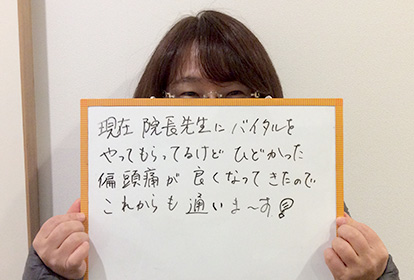 現在 院長先生に バイタルを
やってもらってるけど ひどかった
偏頭痛が 良くなってきたので
これからも 通いま〜す!